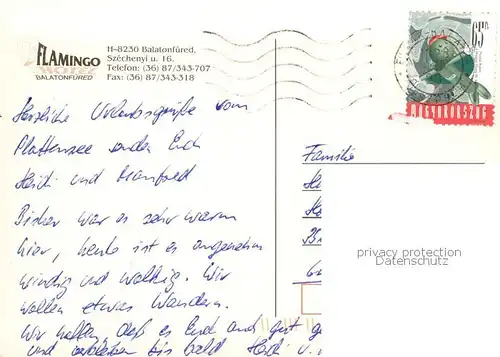 FLAMINGO
HOTEL
BALATONFÜRED
H-8230 Balatonfüred,
Széchenyi u. 16.
Telefon: (36) 87/343-707
Fax: (36) 87/343-318
65Ft
MAGYARORSZÁG
Herzliche Urlaubsgrüße vom
Plattensee senden Euch
Heidi und Manfred
Bisher war es sehr warm
hier, heute ist es angenehm
windig und wolkig. Wir
wollen etwas Wandern.
Wir hoffen, daß es Euch auch gut
und verbleiben bis bald Heidi u.
Familie
privacy protection
Datenschutz